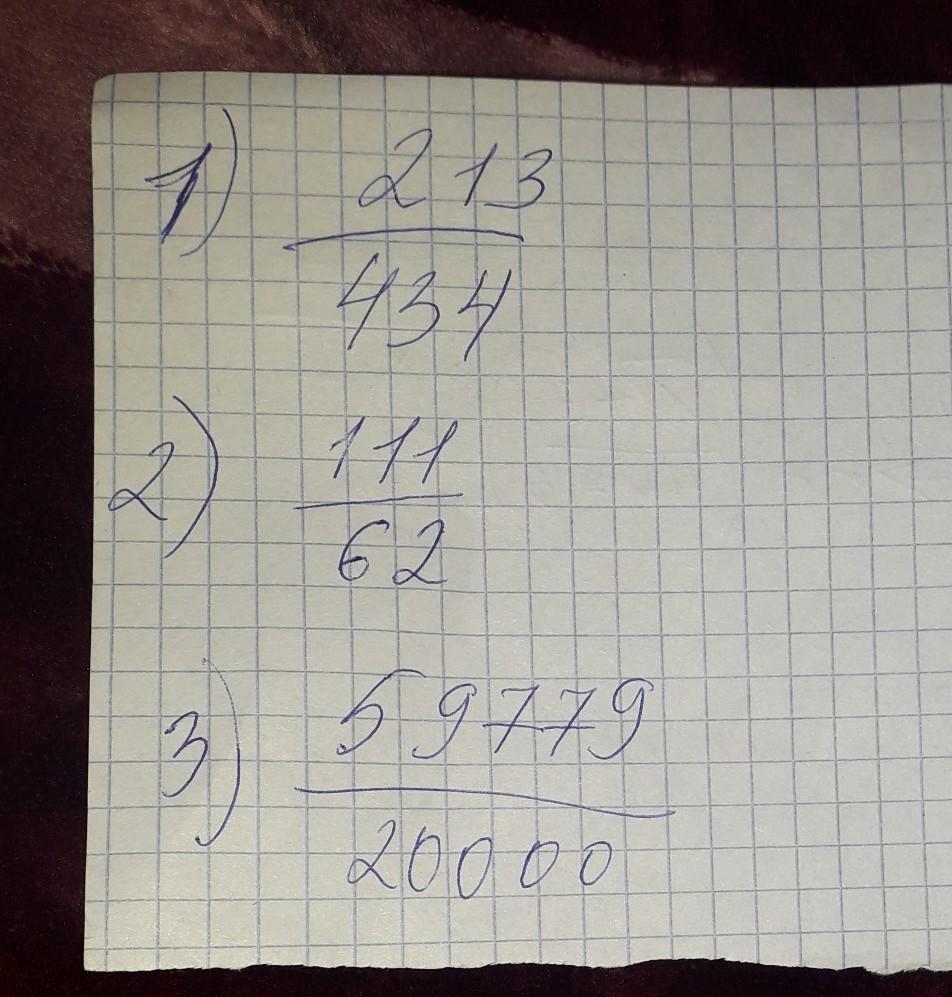 1) 213
434
2) 111
62
3) 59779
20000